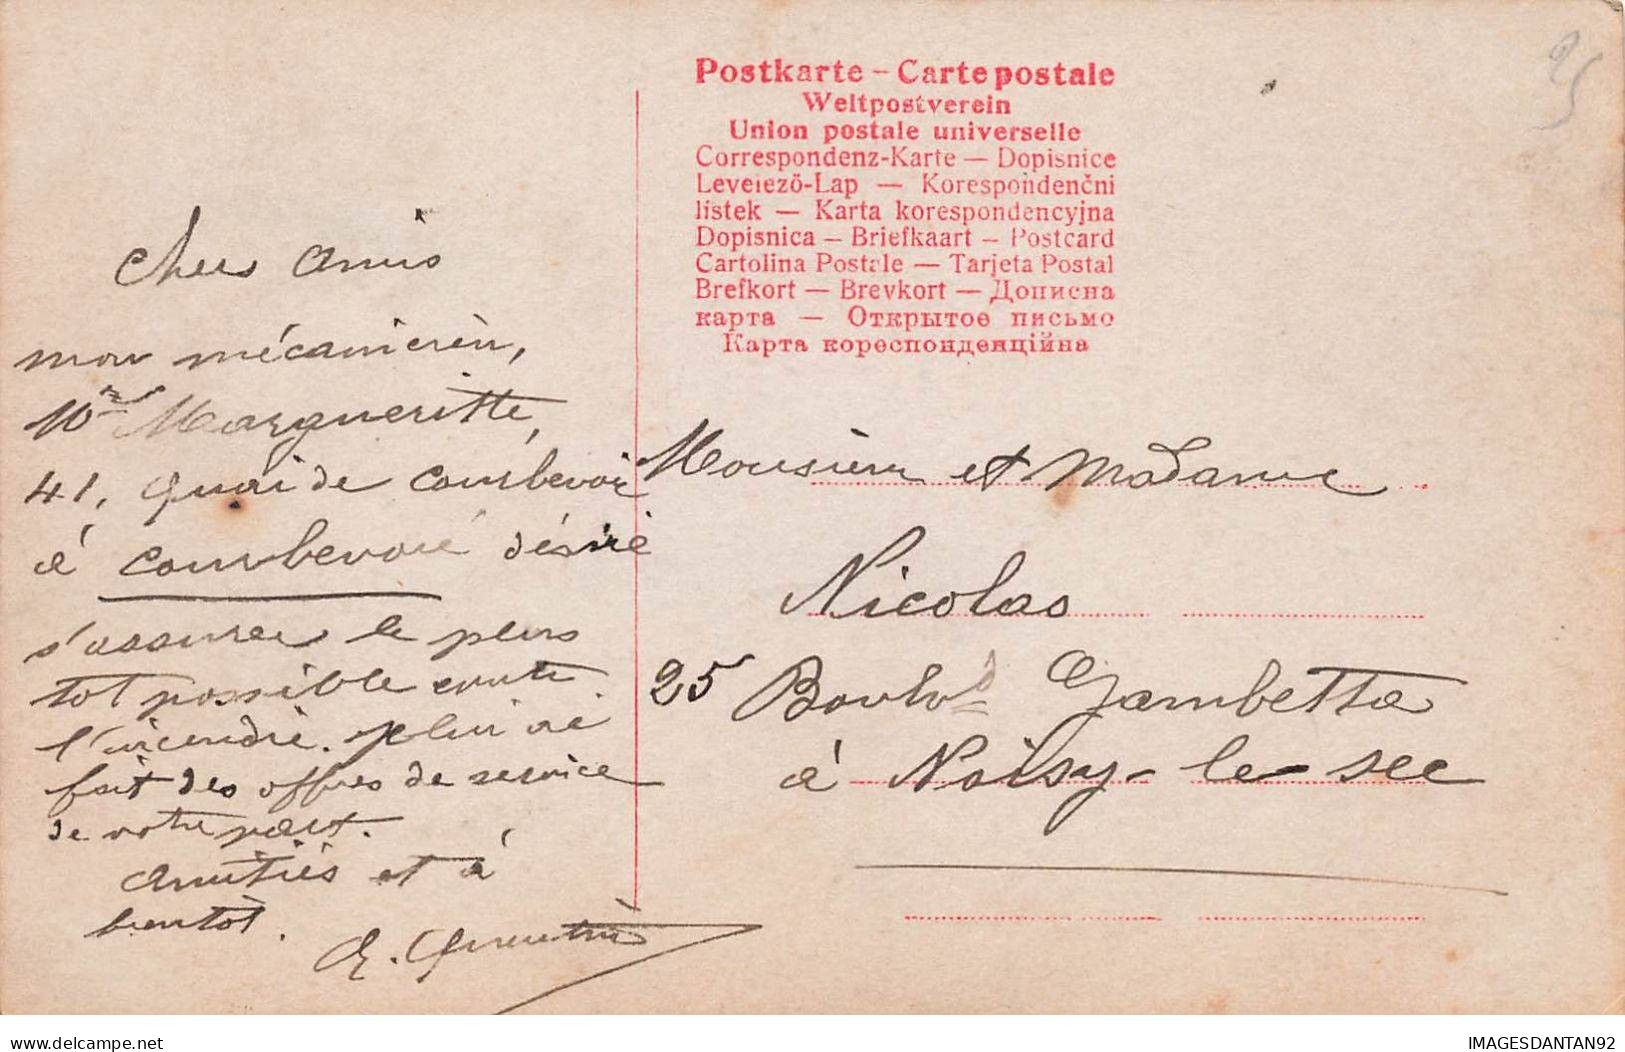 Postkarte – Carte postale
Weltpostverein
Union postale universelle
Correspondenz-Karte — Dopisnice
Levelező-Lap — Korespondenční
lístek — Karta korespondencyjna
Dopisnica — Briefkaart — Postcard
Cartolina Postale — Tarjeta Postal
Brefkort — Brevkort — Дописна
карта — Открытое письмо
Карта кореспонденційна
25
Chers amis
mon mécanicien,
Mr Margueritte,
41, quai de Courbevoie
à Courbevoie désire
s'assurer le plus
tot possible contre
l'incendie.
fait des offres de service
de votre part.
Amitiés et à
bientôt.
Monsieur et Madame
Nicolas
25 Boulvd Gambetta
à Noisy-le-sec
Delcampe.com
IMAGESDANTAN92